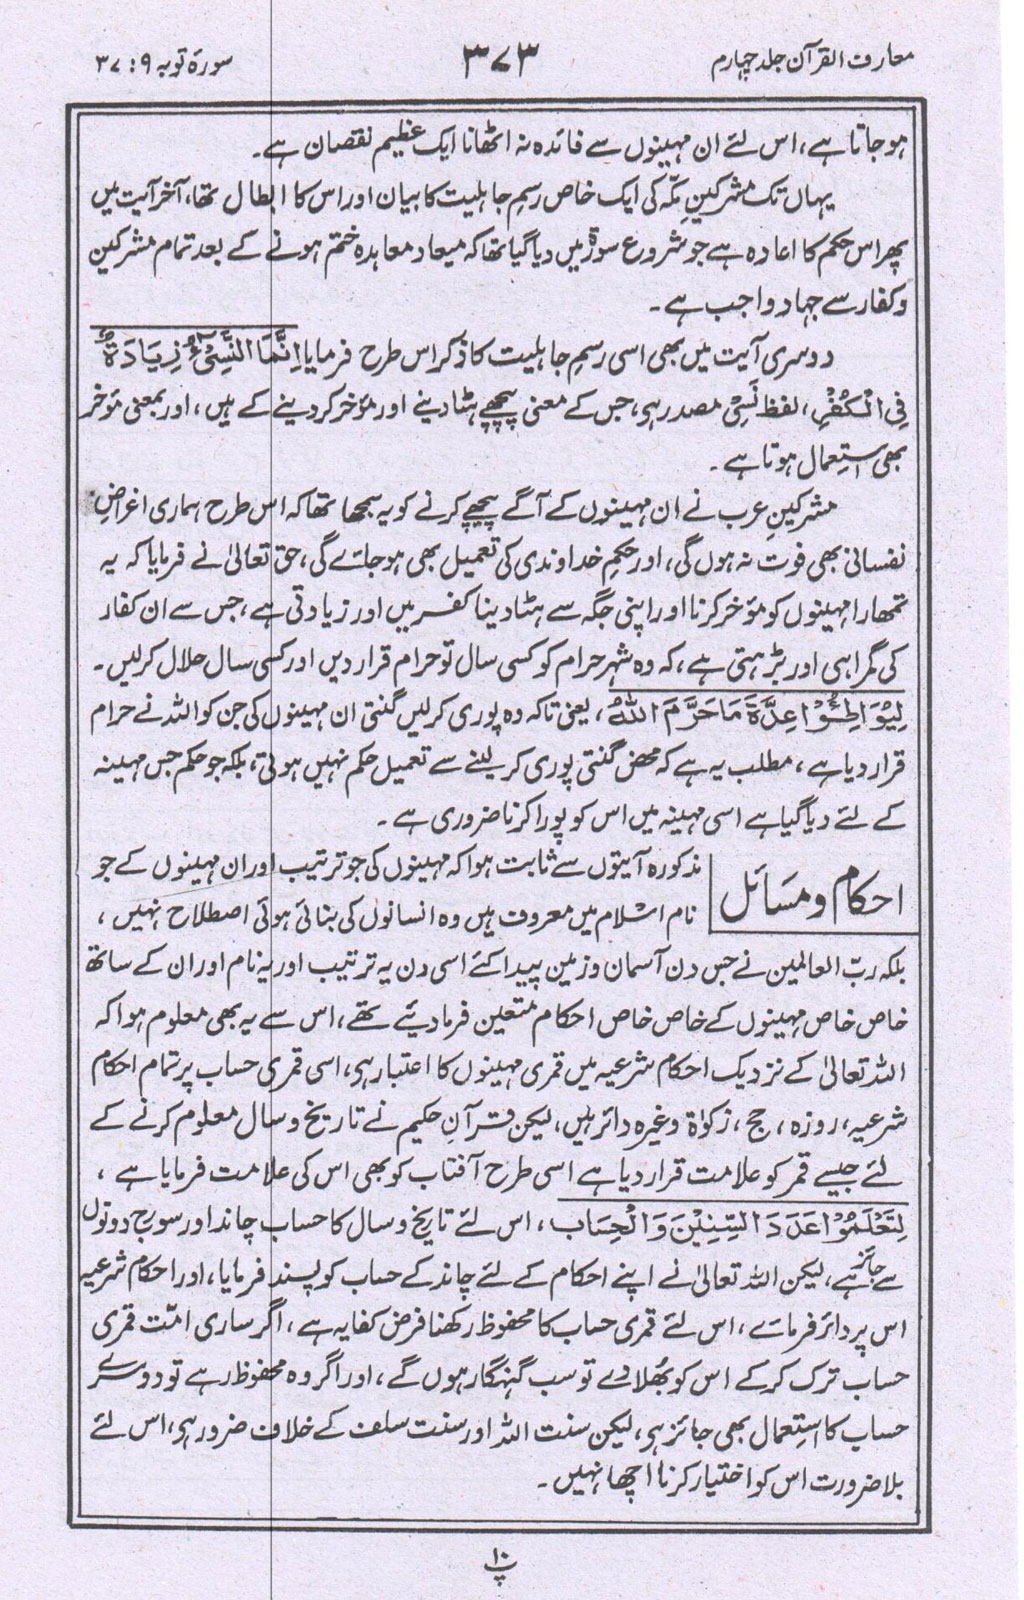 معارف القرآن جلد چہارم
۳۷۳
سورۃ توبہ ۹ : ۳۷
ہوجاتا ہے، اس لئے ان مہینوں سے فائدہ نہ اٹھانا ایک عظیم نقصان ہے۔
یہاں تک مشرکینِ مکّہ کی ایک خاص رسمِ جاہلیت کا بیان اور اس کا ابطال تھا، آخر آیت میں
پھر اس حکم کا اعادہ ہے جو شروع سورۃ میں دیا گیا تھا کہ میعاد معاہدہ ختم ہونے کے بعد تمام مشرکین
و کفار سے جہاد واجب ہے۔
دوسری آیت میں بھی اسی رسمِ جاہلیت کا ذکر اس طرح فرمایا اِنَّمَا النَّسِیْٓءُ زِیَادَۃٌ
فِی الْکُفْرِ، لفظ نَسِیْ مصدر ہی، جس کے معنی پیچھے ہٹا دینے اور مؤخر کر دینے کے ہیں، اور بمعنی مؤخر
بھی استعمال ہوتا ہے۔
مشرکینِ عرب نے ان مہینوں کے آگے پیچھے کرنے کو یہ سمجھا تھا کہ اس طرح ہماری اغراضِ
نفسانی بھی فوت نہ ہوں گی، اور حکمِ خداوندی کی تعمیل بھی ہو جائے گی، حق تعالیٰ نے فرمایا کہ یہ
تمھارا مہینوں کو مؤخر کرنا اور اپنی جگہ سے ہٹا دینا کفر میں اور زیادتی ہے، جس سے ان کفار
کی گمراہی اور بڑہتی ہے، کہ وہ شہر حرام کو کسی سال تو حرام قرار دیں اور کسی سال حلال کرلیں۔
لِیُوَاطِئُوْا عِدَّۃَ مَا حَرَّمَ اللّٰہُ، یعنی تاکہ وہ پوری کرلیں گنتی ان مہینوں کی جن کو اللہ نے حرام
قرار دیا ہے، مطلب یہ ہے کہ محض گنتی پوری کر لینے سے تعمیل حکم نہیں ہوتی، بلکہ جو حکم جس مہینہ
کے لئے دیا گیا ہے اسی مہینہ میں اس کو پورا کرنا ضروری ہے۔
احکام و مسائل
مذکورہ آیتوں سے ثابت ہوا کہ مہینوں کی جو ترتیب اور ان مہینوں کے جو
نام اسلام میں معروف ہیں وہ انسانوں کی بنائی ہوئی اصطلاح نہیں،
بلکہ ربّ العالمین نے جس دن آسمان و زمین پیدا کئے اسی دن یہ ترتیب اور یہ نام اور ان کے ساتھ
خاص خاص مہینوں کے خاص خاص احکام متعین فرما دیئے تھے، اس سے یہ بھی معلوم ہوا کہ
اللہ تعالیٰ کے نزدیک احکام شرعیہ میں قمری مہینوں کا اعتبار ہی، اسی قمری حساب پر تمام احکام
شرعیہ، روزہ، حج، زکوٰۃ وغیرہ دائر ہیں، لیکن قرآنِ حکیم نے تاریخ و سال معلوم کرنے کے
لئے جیسے قمر کو علامت قرار دیا ہے اسی طرح آفتاب کو بھی اس کی علامت فرمایا ہے،
لِتَعْلَمُوْا عَدَدَ السِّنِیْنَ وَالْحِسَابَ، اس لئے تاریخ و سال کا حساب چاند اور سورج دونوں
سے جائز ہے، لیکن اللہ تعالیٰ نے اپنے احکام کے لئے چاند کے حساب کو پسند فرمایا، اور احکام شرعیہ
اس پر دائر فرمائے، اس لئے قمری حساب کا محفوظ رکھنا فرض کفایہ ہے، اگر ساری امّت قمری
حساب ترک کرکے اس کو بُھلا دے تو سب گنہگار ہوں گے، اور اگر وہ محفوظ رہے تو دوسرے
حساب کا استعمال بھی جائز ہی، لیکن سنت اللہ اور سنت سلف کے خلاف ضرور ہی، اس لئے
بلا ضرورت اس کو اختیار کرنا اچھا نہیں۔
پ ۱۰